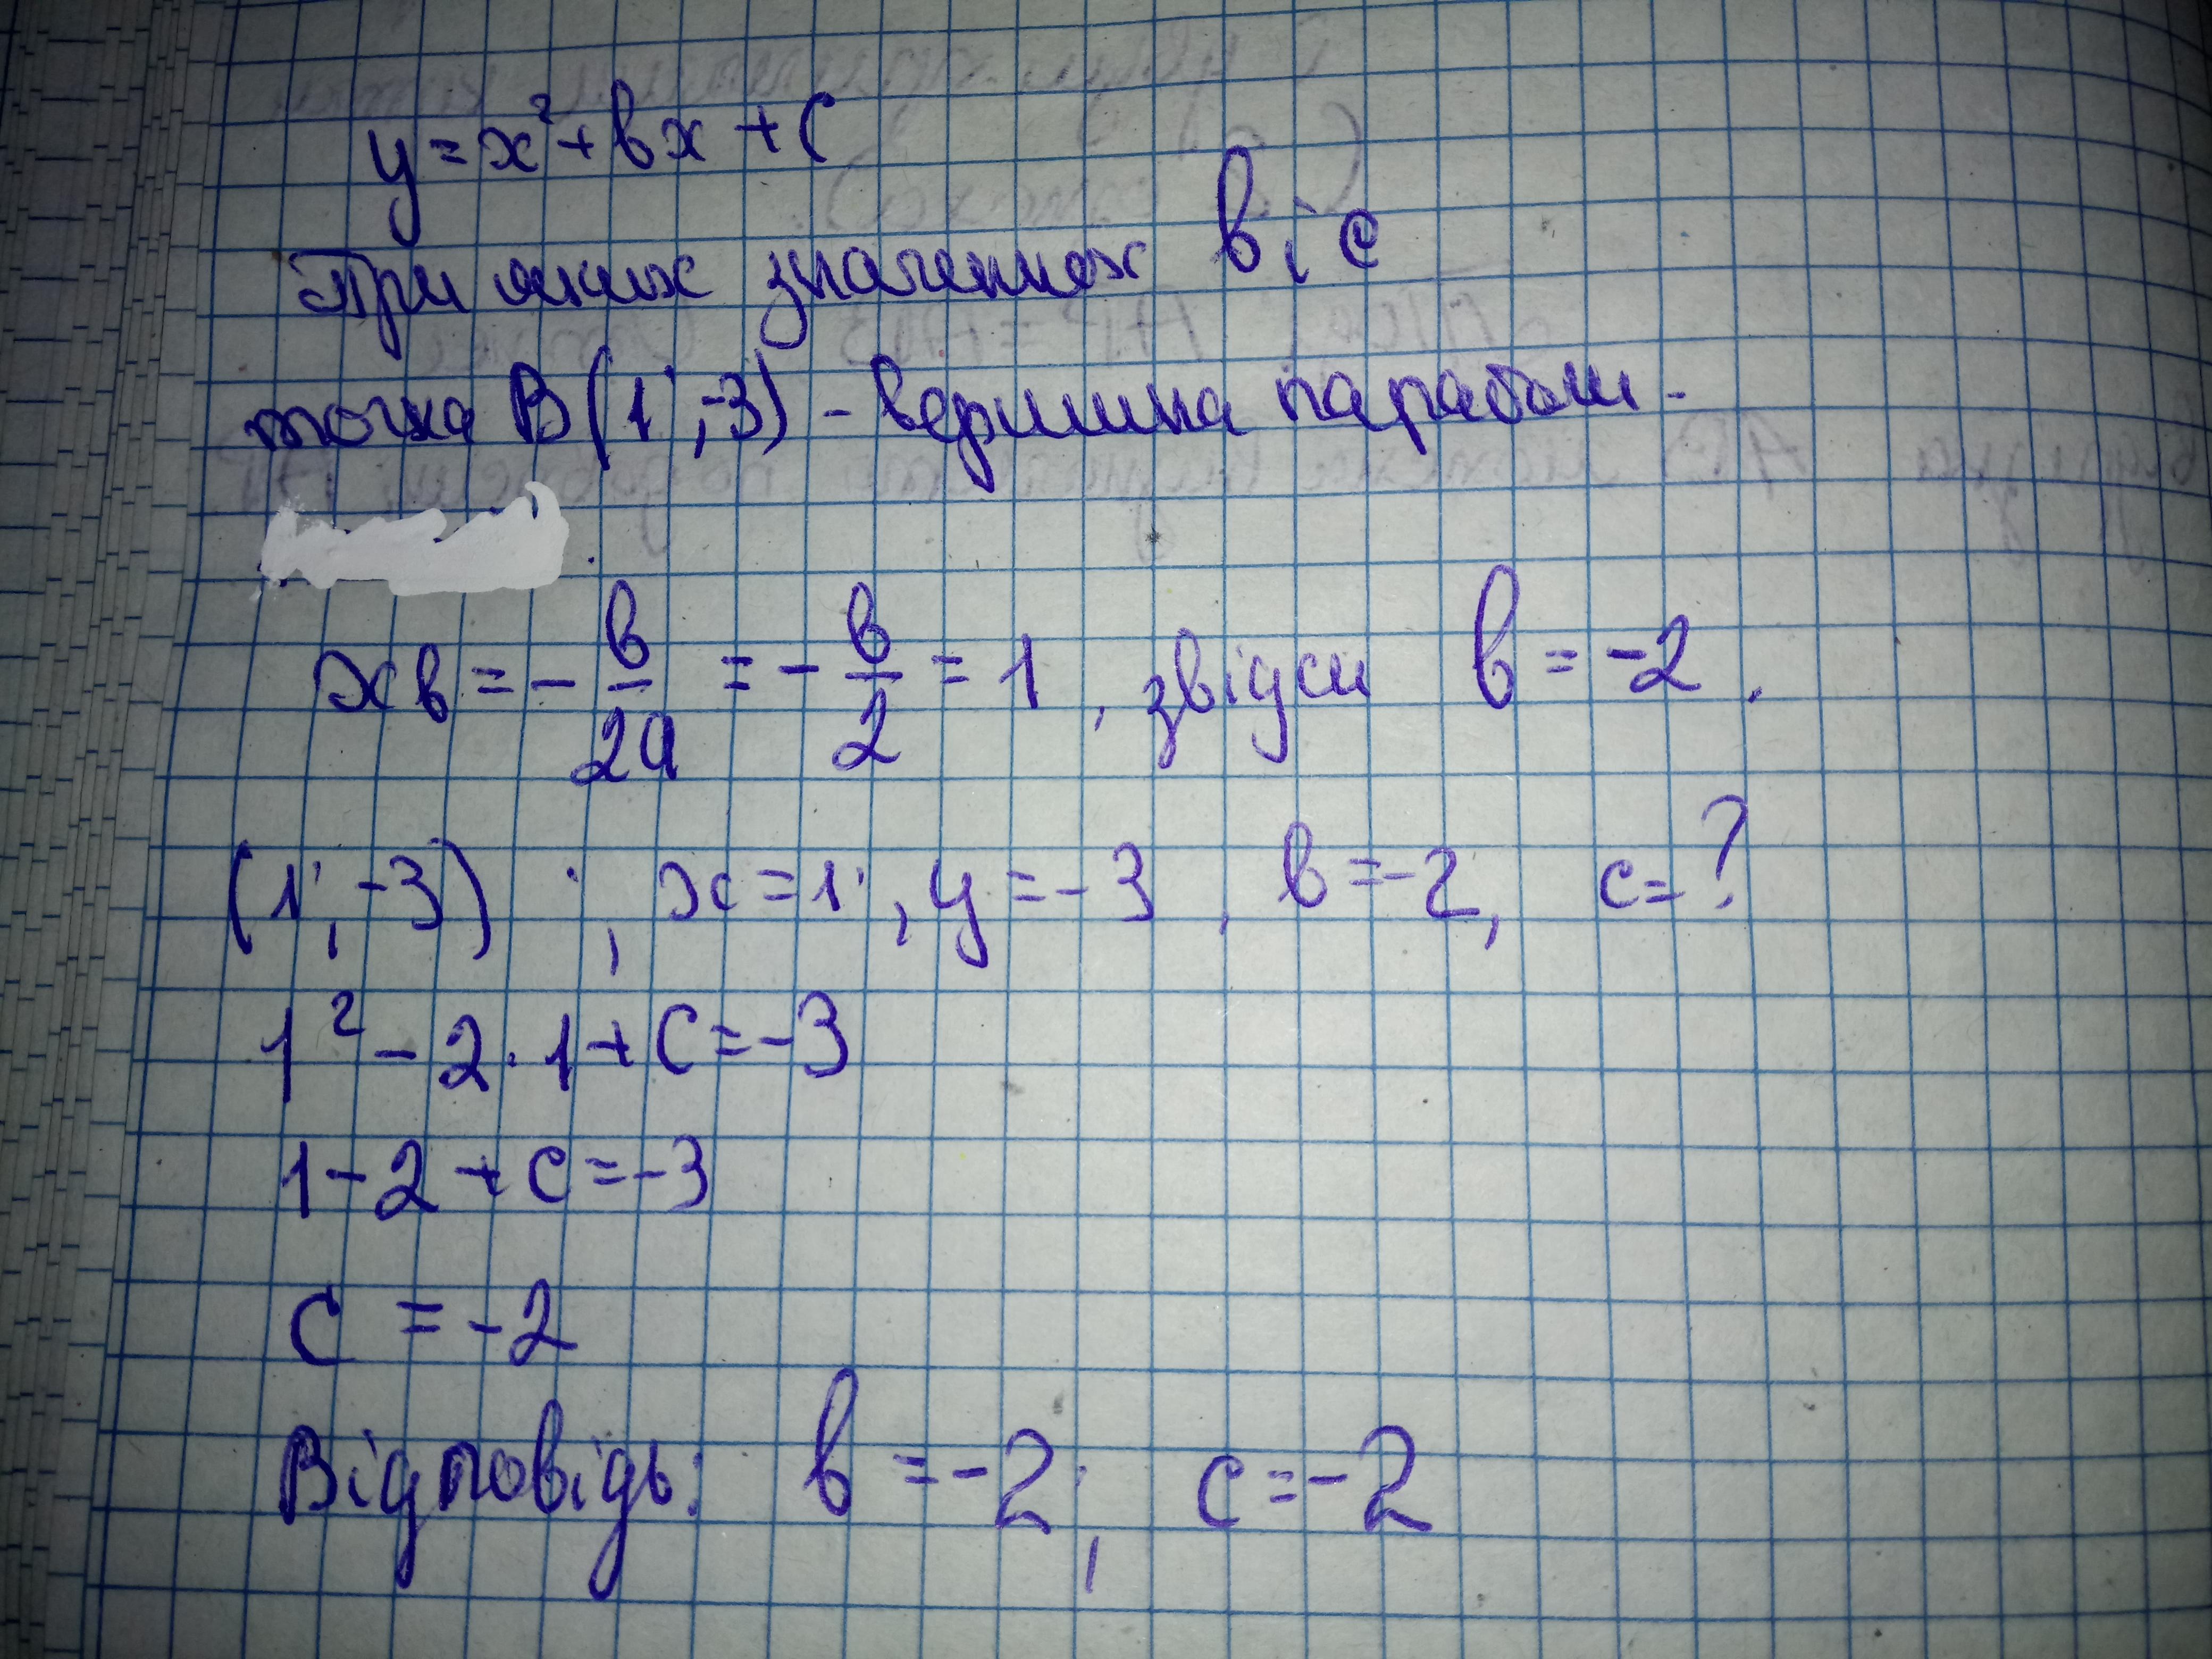 y = x² + bx + c
При яких значеннях b і c
точка B(1; -3) - вершина параболи.
xв = - b/2a = - b/2 = 1, звідси b = -2.
(1; -3); x = 1; y = -3, b = -2, c = ?
1² - 2 · 1 + c = -3
1 - 2 + c = -3
c = -2
Відповідь: b = -2; c = -2